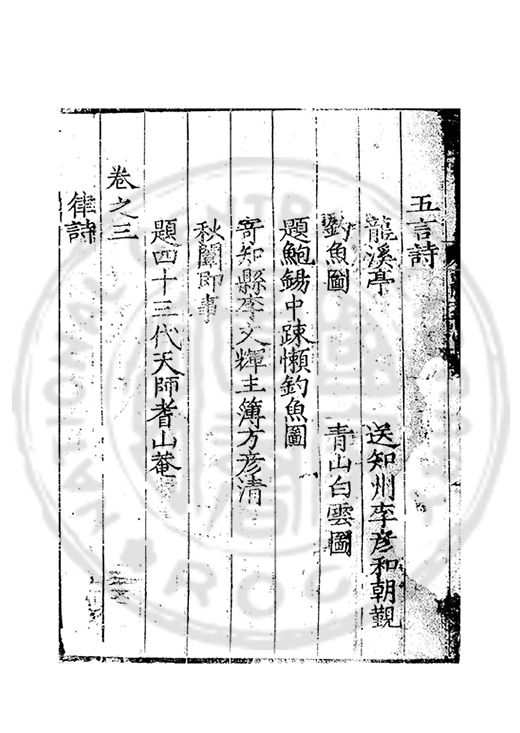 五言詩
龍溪亭 送知州李彦和朝覲
釣魚圖 青山白雲圖
題鮑錫中踈懶釣魚圖
寄知縣李文輝主簿方彦清
秋闈即事
題四十三代天師耆山菴
卷之三
律詩